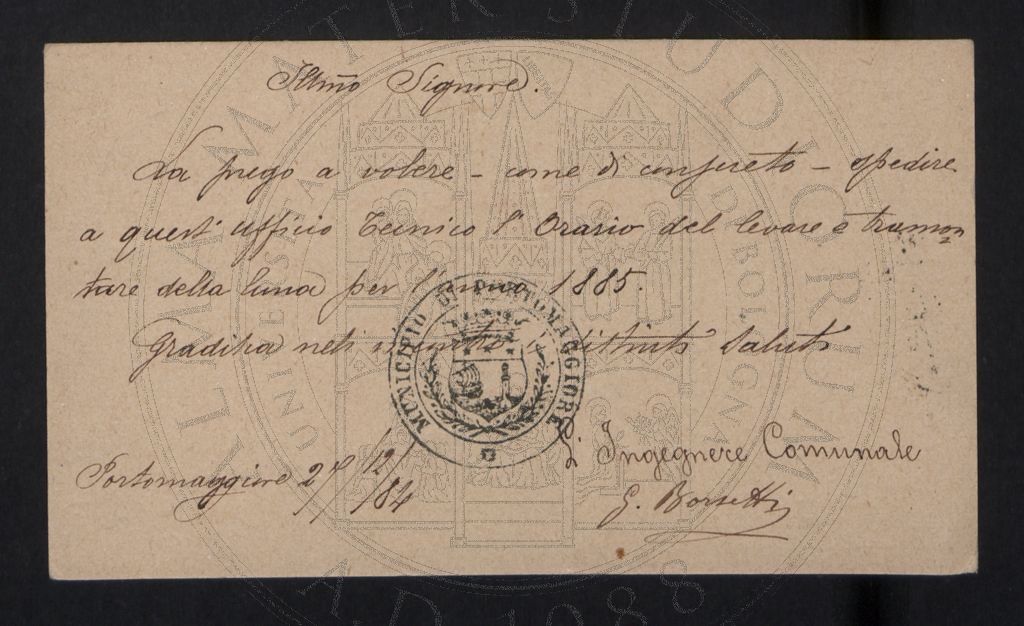 Illmo Signore.
La prego a volere – come di consueto – spedire
a quest' Ufficio Tecnico l'Orario del levare e tramon
tare della luna per l'anno 1885.
Gradisca distinti saluti
MUNICIPIO DI PORTOMAGGIORE
L'Ingegnere Comunale
Portomaggiore 27/12/84
G. Borsetti
ALMA MATER STUDIORUM
UNIVERSITA DI BOLOGNA
A.D. 1088